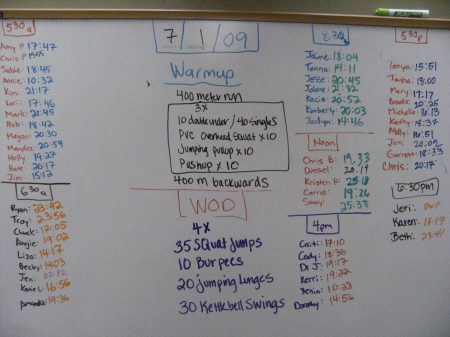 530a
Amy P 17:47
Chris P 15:05
Sable 18:45
Annie 10:32
Kim 21:17
Lori 17:46
Mark 21:45
Rob 18:42
Megan 20:30
Mandee 20:59
Holly 19:27
Nate 20:17
Jim 15:12
630a
Ryan: 22:42
Troy: 23:56
Chuck: 17:05
Angie: 19:02
Liza: 14:17
Becky: 14:03
Jen:
Katie L: 16:56
Amanda: 19:36
7/1/09
Warmup
400 meter run
3x
10 double under / 40 singles
PVC overhead squat x10
Jumping pullup x10
Pushup x 10
400 m backwards
WOD
4x
35 Squat jumps
10 Burpees
20 jumping lunges
30 Kettlebell Swings
Jaime 18:04
Tanna 14:11
Jesse 20:45
Jolene 21:32
Kacia 26:52
Kimberly 20:03
Jaclyn 14:46
Noon
Chris B: 19:33
Diesel: 20:19
Kristen H: 25:18
Carrie: 19:26
Stacy: 25:38
4pm
Caiti: 17:10
Cody: 18:36
Di J: 19:17
Kerri: 19:22
Xenia: 10:28
Dorothy: 14:56
530p
Tanya: 15:51
Tasha: 18:00
Mary: 17:17
Brooks: 20:25
Michelle: 16:13
Kathy: 18:37
Molly: 16:51
Jen: 20:09
Garrett: 18:33
Chris: 20:17
6:30pm
Jeri: DNF
Karen: 18:19
Beth: